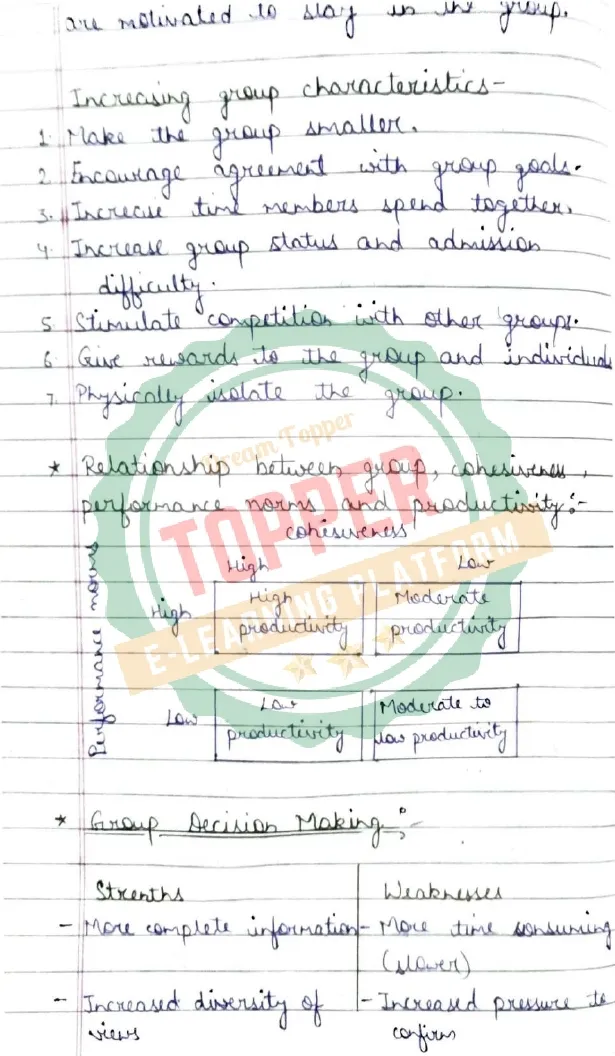 are motivated to stay in the group.
Increasing group characteristics-
1. Make the group smaller.
2 Encourage agreement with group goals.
3. Increase time members spend together.
4. Increase group status and admission
difficulty.
5. Stimulate competition with other groups.
6. Give rewards to the group and individuals
7. Physically isolate the group.
* Relationship between group, cohesiveness,
performance norms and productivity:-
cohesiveness
High Low
Performance norms
High
High productivity
Moderate productivity
Low
Low productivity
Moderate to low productivity
* Group Decision Making:-
Strenths Weaknesses
- More complete information - More time sonsuming
(slower)
- Increased diversity of - Increased pressure to
views confirm
Dream Topper
TOPPER
E-LEARNING PLATFORM